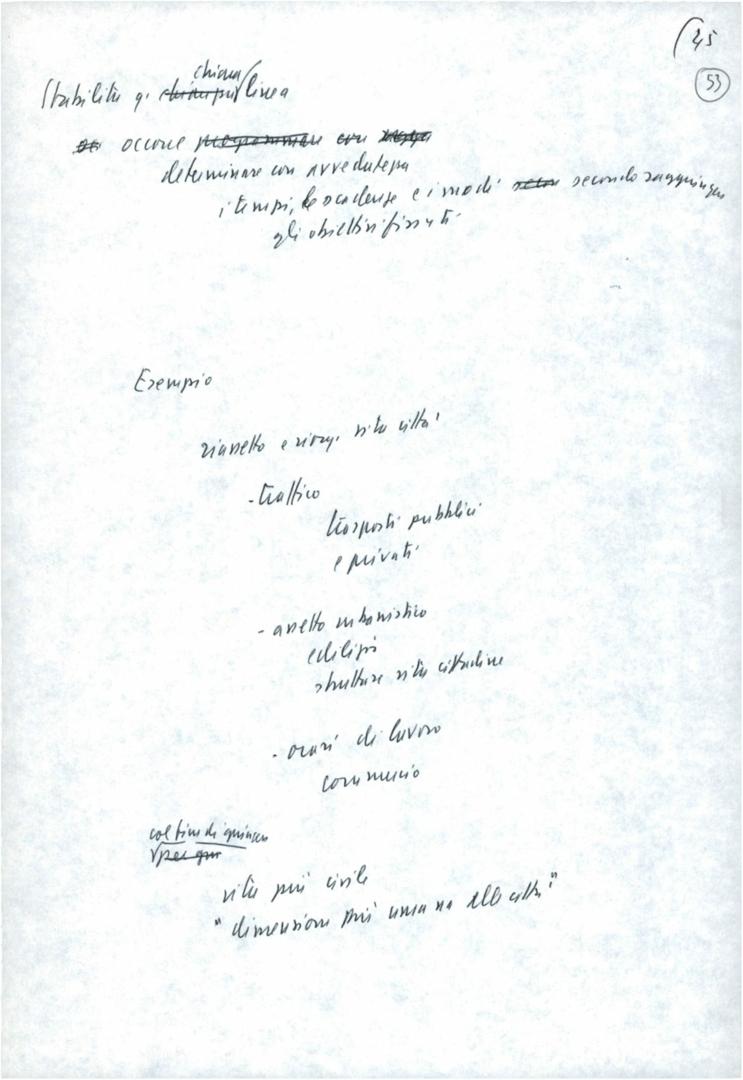 45
53
chiara
Stabilita q. linea
occorre
determinare con avvedutezza
i tempi, le scadenze e i modi secondo raggiungere
gli obiettivi fissati
Esempio
riassetto e riorg. vita città
- traffico
trasporti pubblici
e privati
- assetto urbanistico
edilizia
strutture vita cittadina
- orari di lavoro
commercio
col fine di giungere
per
vita più civile
"dimensione più umana della città"